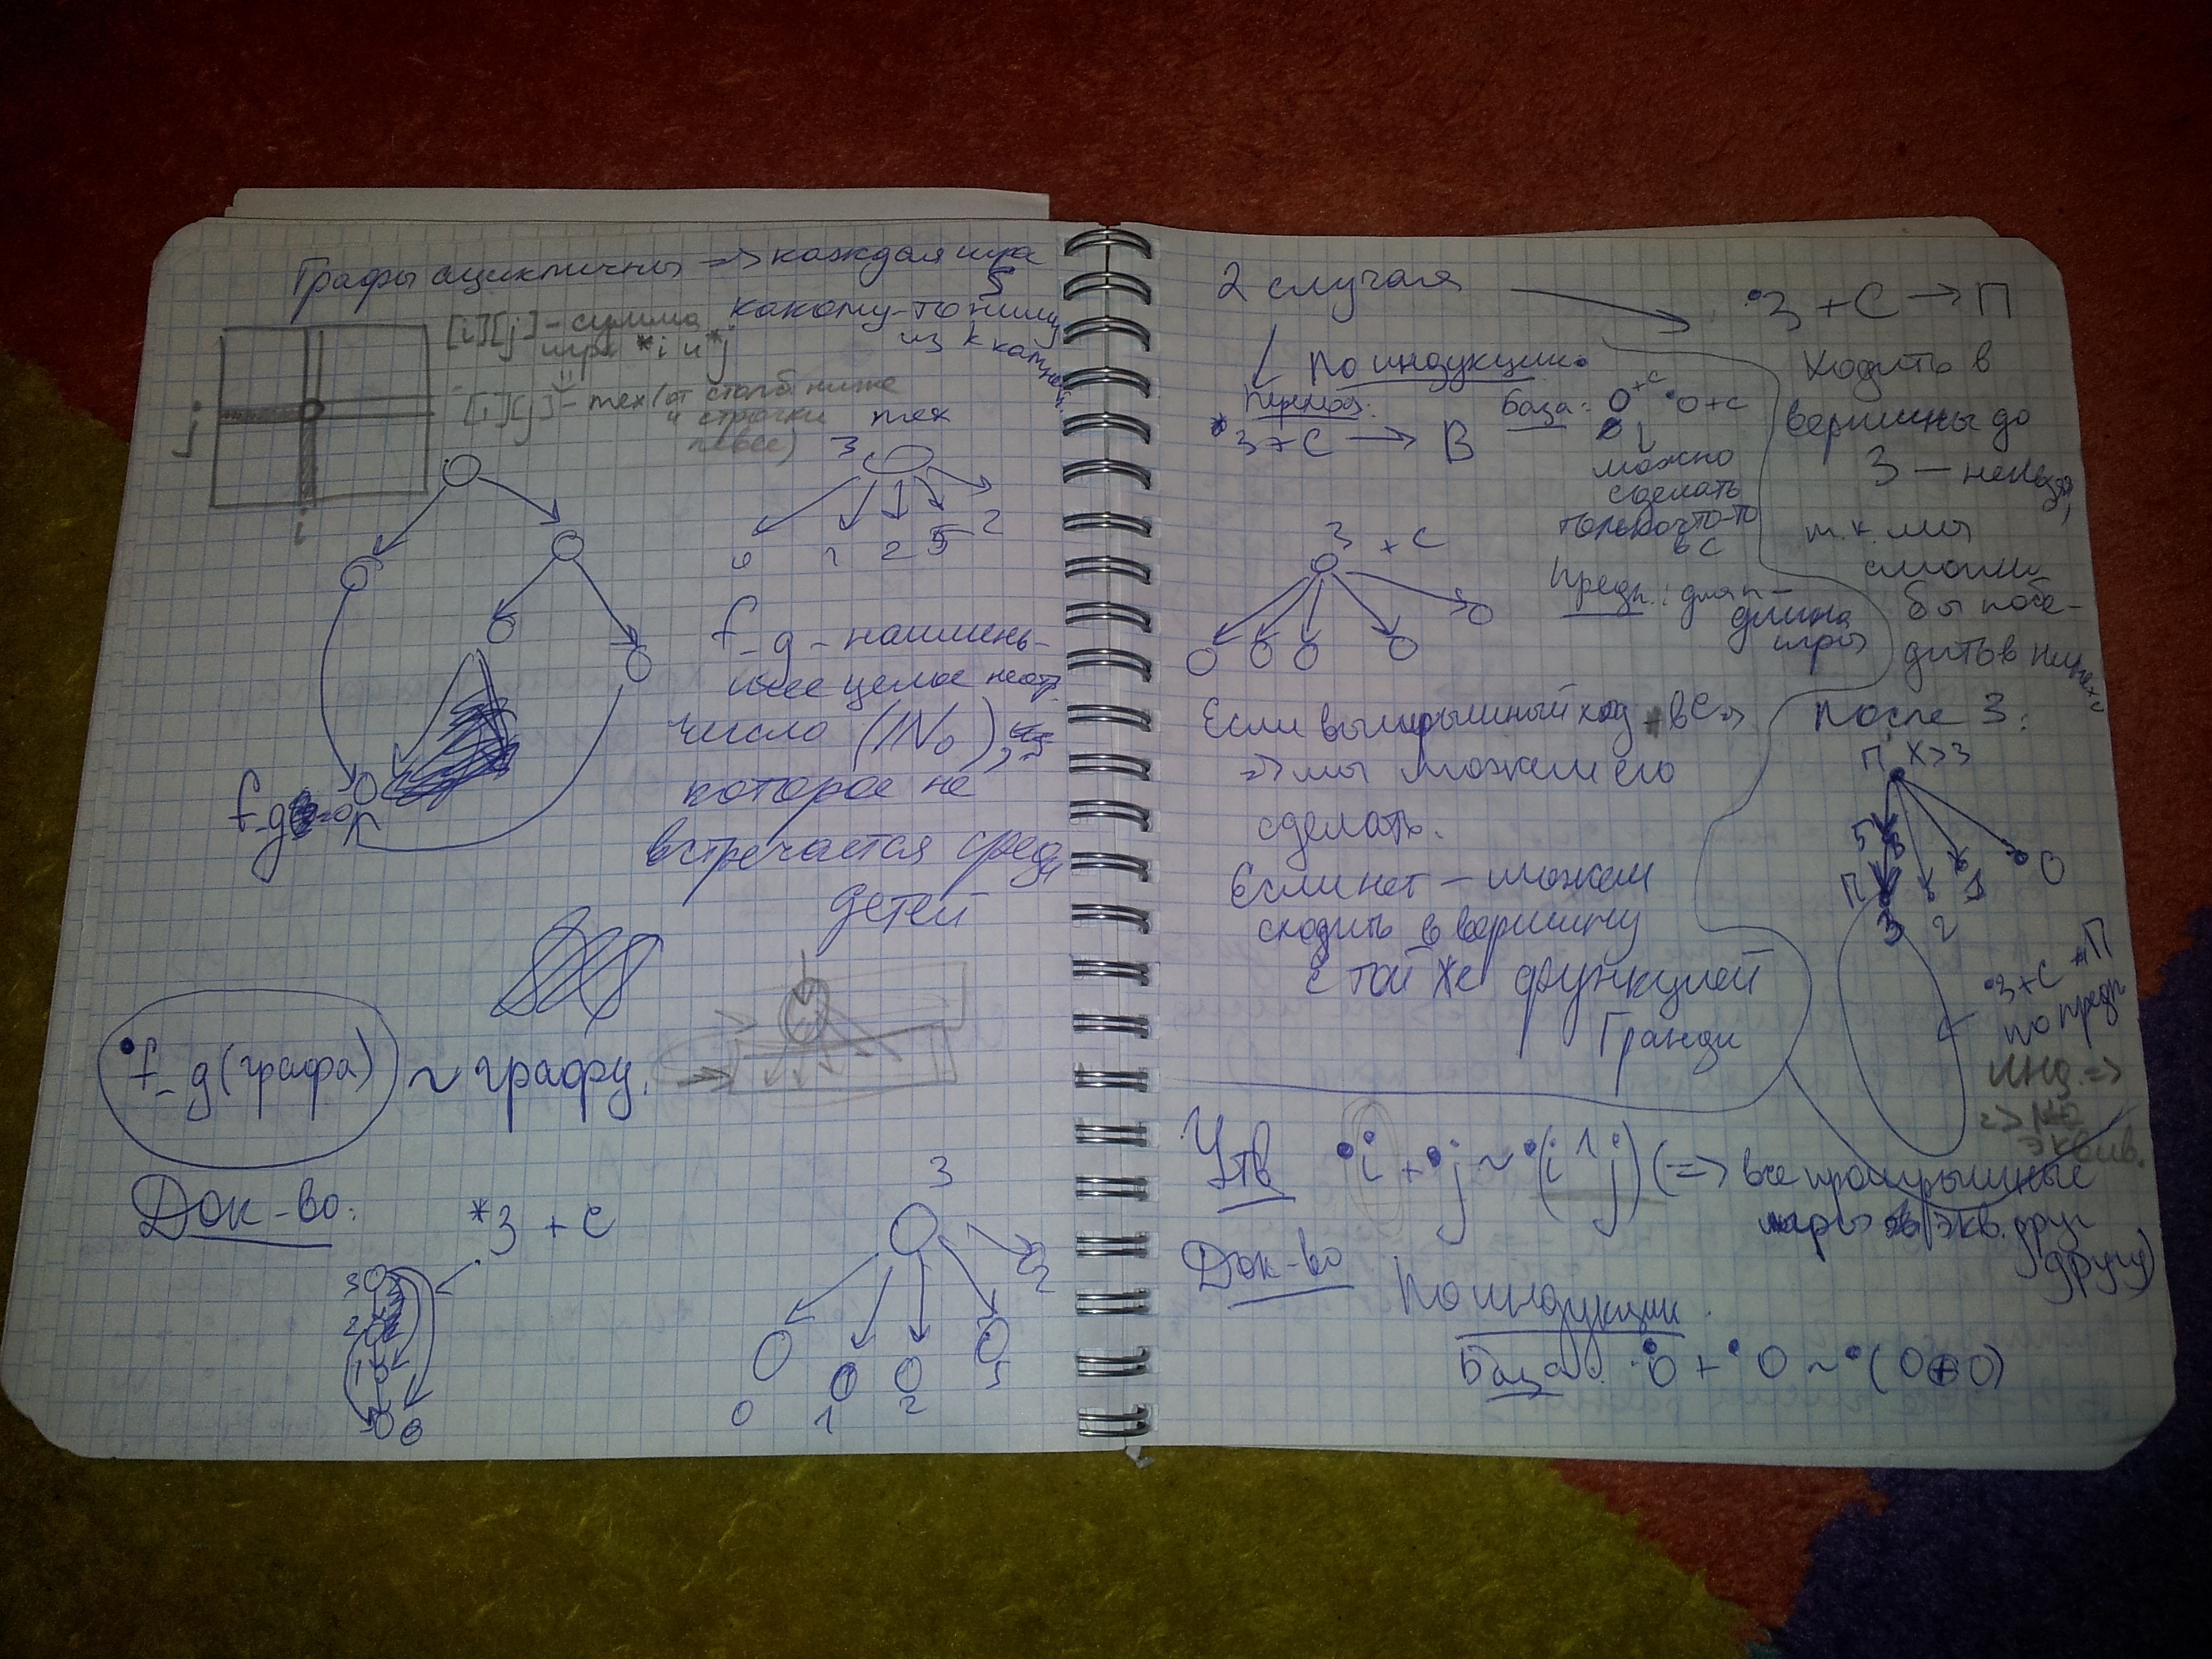 Графы ацикличны => каждая игра
~
какому-то ниму
из k камней.
[i][j] - сумма
игр *i и *j
[i][j] - mex (от столб. ниже
и строчки
левее)
j
i
mex
3
0 1 2 5 2
f_g - наимень-
шее целое неотр.
число (IN₀),
которое не
встречается среди
детей
f_g = 0
•f_g (графа) ~ графу.
Док-во:
*3 + C
3
2
1
0
3
0 1 2 5 2
2 случая
По индукции
Переход:
*3 + C → В
База: 0 + C •0 + C
можно
сделать
только что-то
в C
Предп.: для n -
длина
игры
3 + C
Если выигрышный ход - в C =>
=> мы можем его
сделать.
Если нет - можем
сходить в вершину
с той же функцией
Гранди
•3 + C → П
Ходить в
вершины до
3 - нельзя,
т.к. мы
смогли
бы побе-
дить в нимах
После 3:
П X > 3
5
П
3 2 1 0
•3 + C → П
по предп.
инд. =>
=>
эквив.
Утв •i + •j ~ •(i ^ j) (=> все проигрышные
экв. друг
другу)
Док-во
По индукции.
База: •0 + •0 ~ •(0 ⊕ 0)